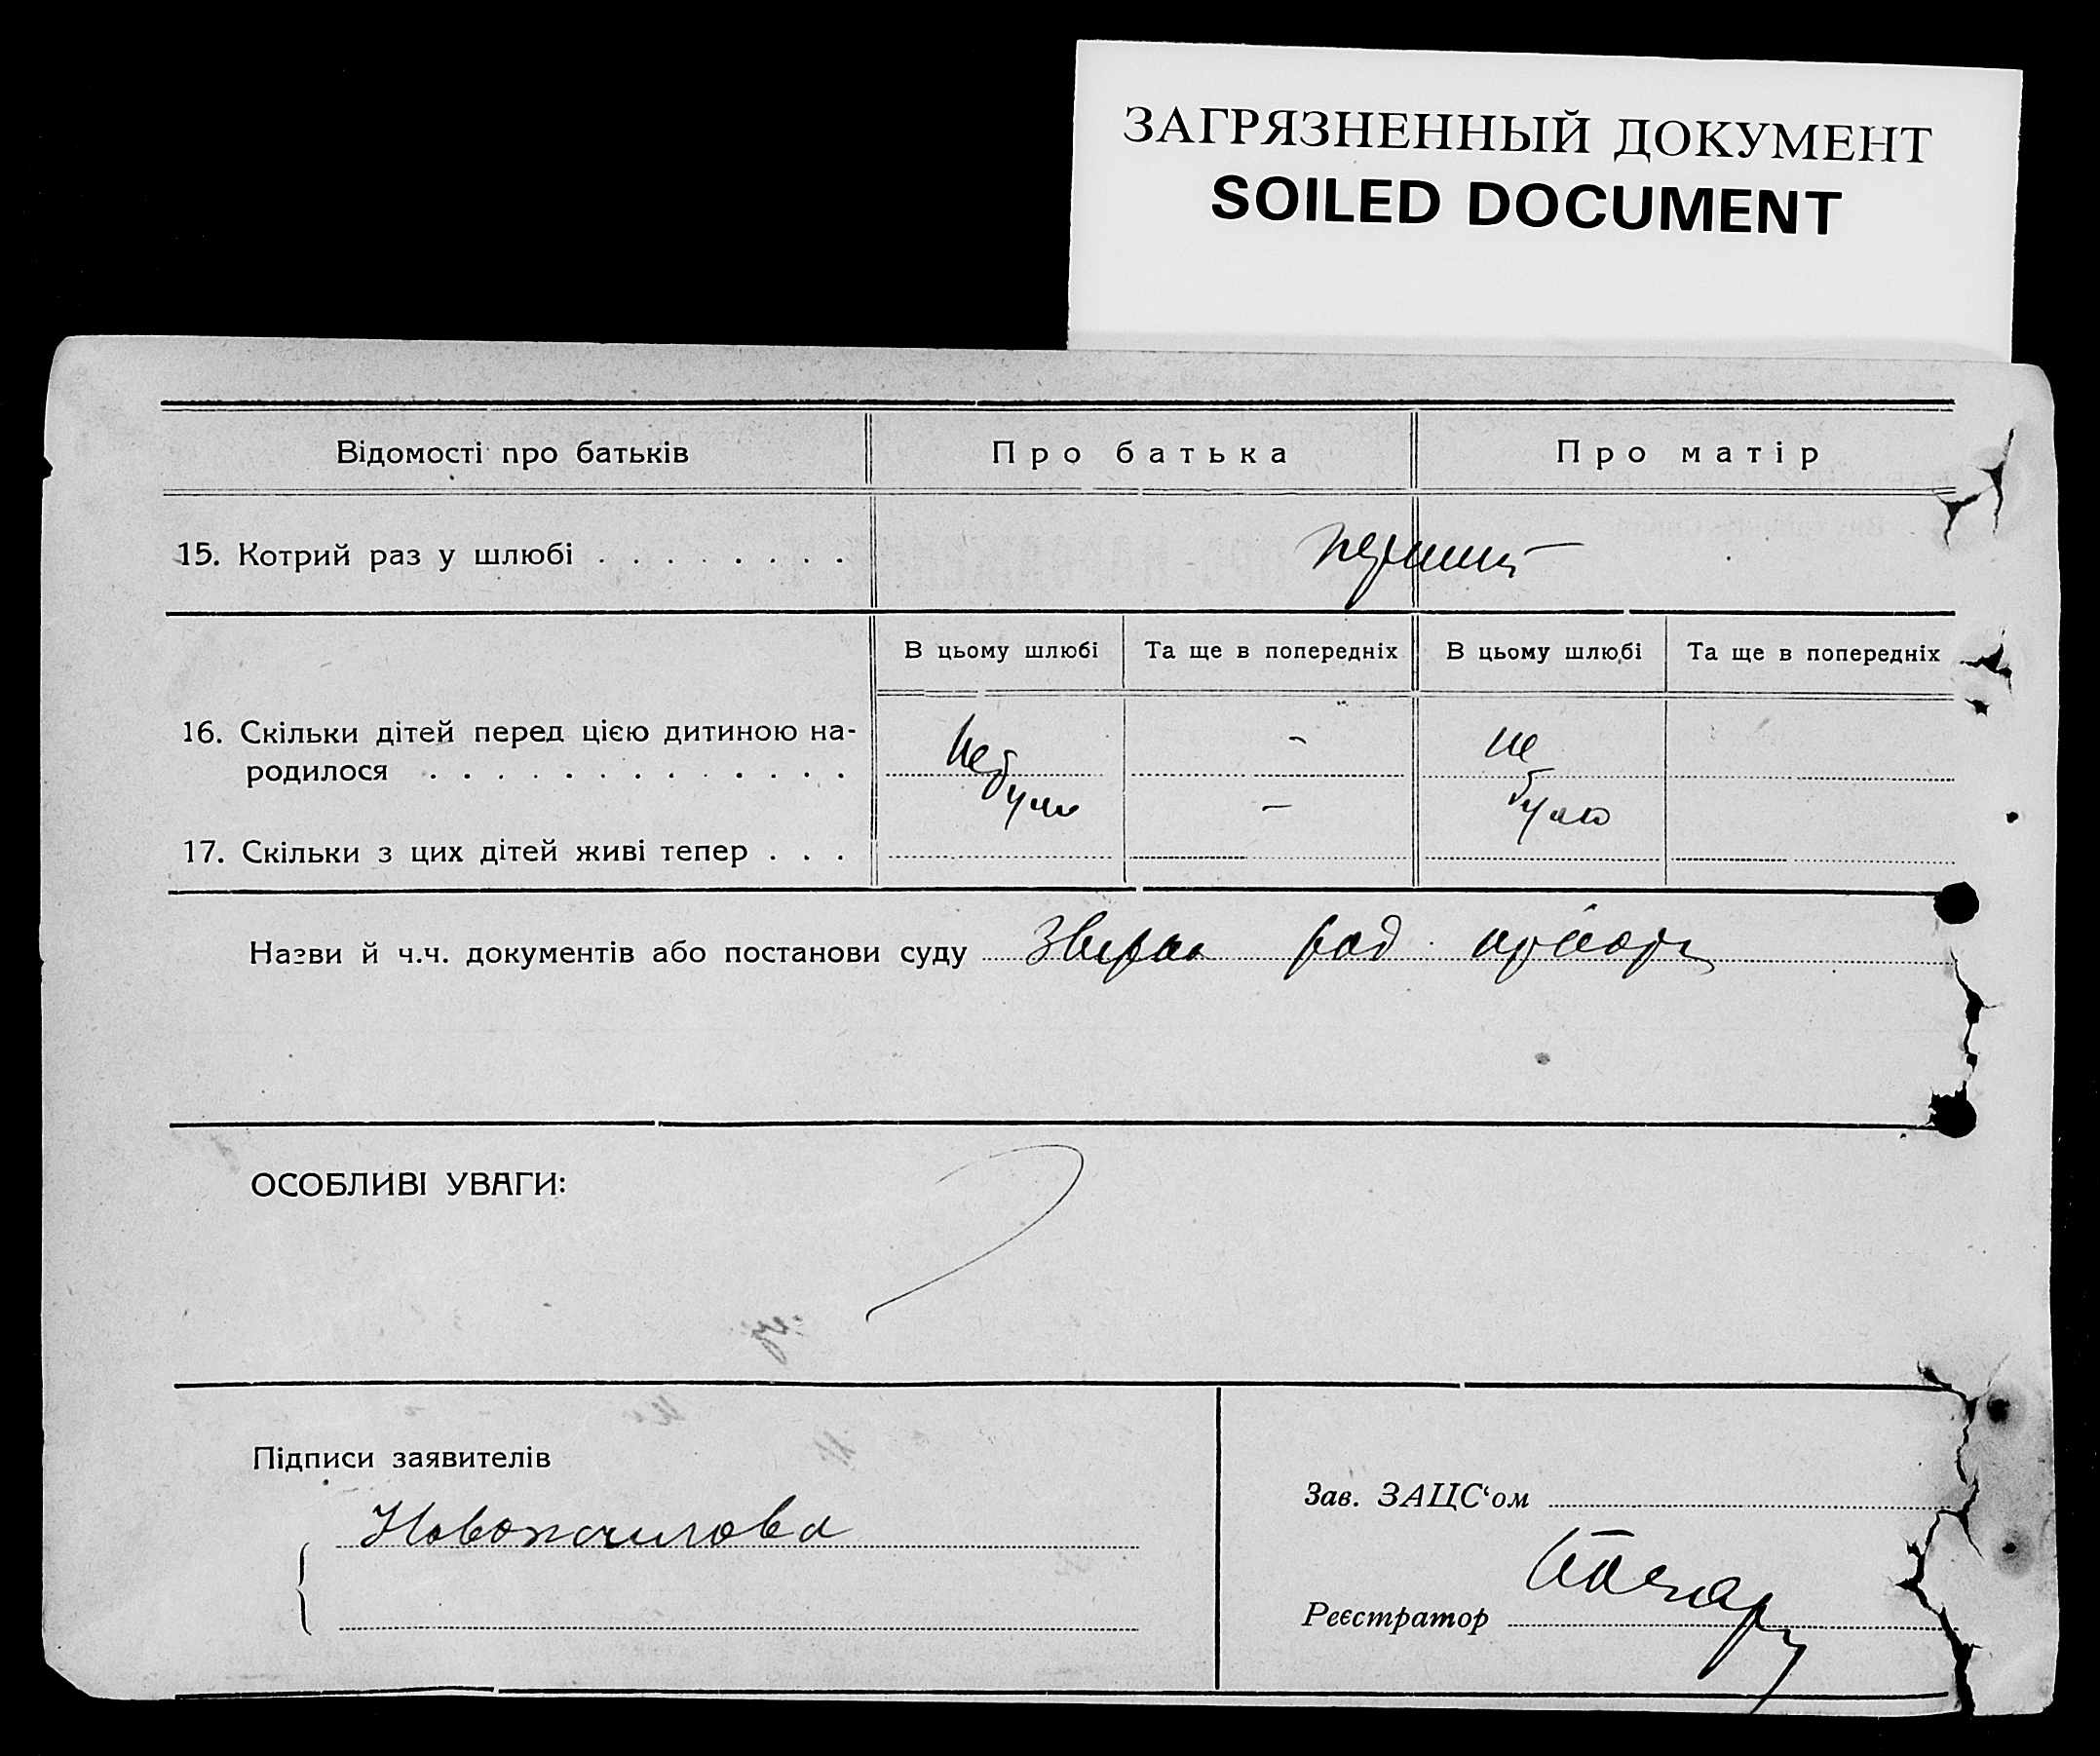 ЗАГРЯЗНЕННЫЙ ДОКУМЕНТ
SOILED DOCUMENT
Відомості про батьків
Про батька
Про матір
15. Котрий раз у шлюбі . . . . . . . .
перший
В цьому шлюбі
Та ще в попередніх
В цьому шлюбі
Та ще в попередніх
16. Скільки дітей перед цією дитиною на-
родилося . . . . . . . . . . . . .
не
було
-
не
було
-
17. Скільки з цих дітей живі тепер . . .
Назви й ч.ч. документів або постанови суду
ОСОБЛИВІ УВАГИ:
Підписи заявителів
Зав. ЗАЦС‘ом
Реєстратор